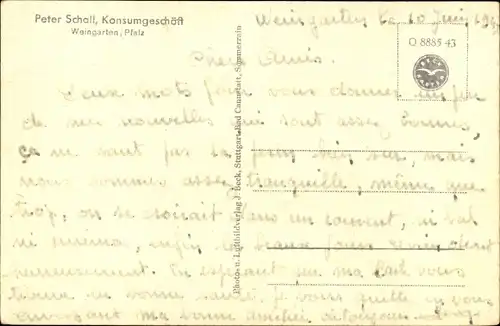 Peter Scholl, Konsumgeschäft
Weingarten, Pfalz
Weingarten le 10 Juin
Q 8885 43
Chers Amis.
Deux mots pour vous donner un peu
de mes nouvelles qui sont assez bonnes,
ce ne sont pas les plus, mais
nous sommes assez tranquille, même que
trop, on se croirait dans un couvent, ni bal
ni cinéma, enfin les beaux jours
En espérant que ma carte vous
trouve en bonne santé. Je vous quitte en vous
envoyant ma bonne amitié
Photo- u. Luftbildverlag J. Beck, Stuttgart-Bad Cannstatt, Sommerrain